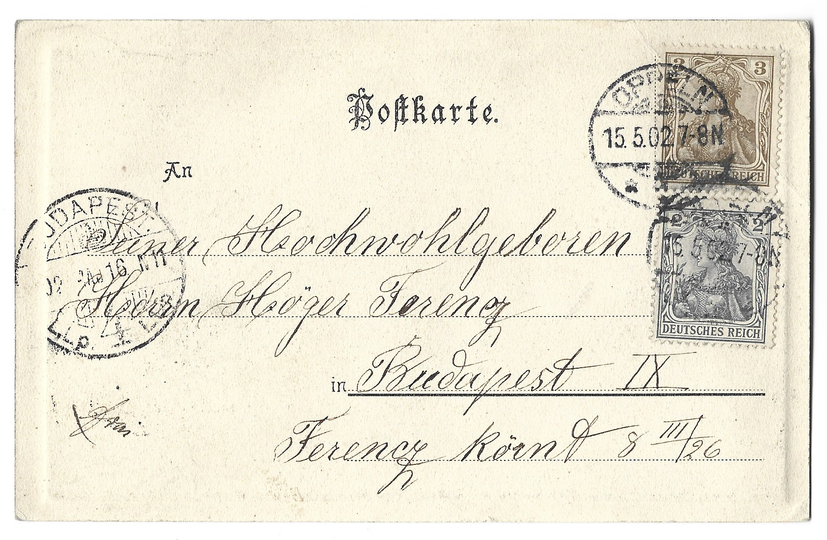 Postkarte.
3
OPPELN
15.5.02.7-8N
DEUTSCHES REICH
An
2 2
15.5.02.7-8N
DEUTSCHES REICH
BUDAPEST
Seiner Hochwohlgeboren
Herrn Höger Ferencz
in Budapest IX
Ferencz körut 8 III/26